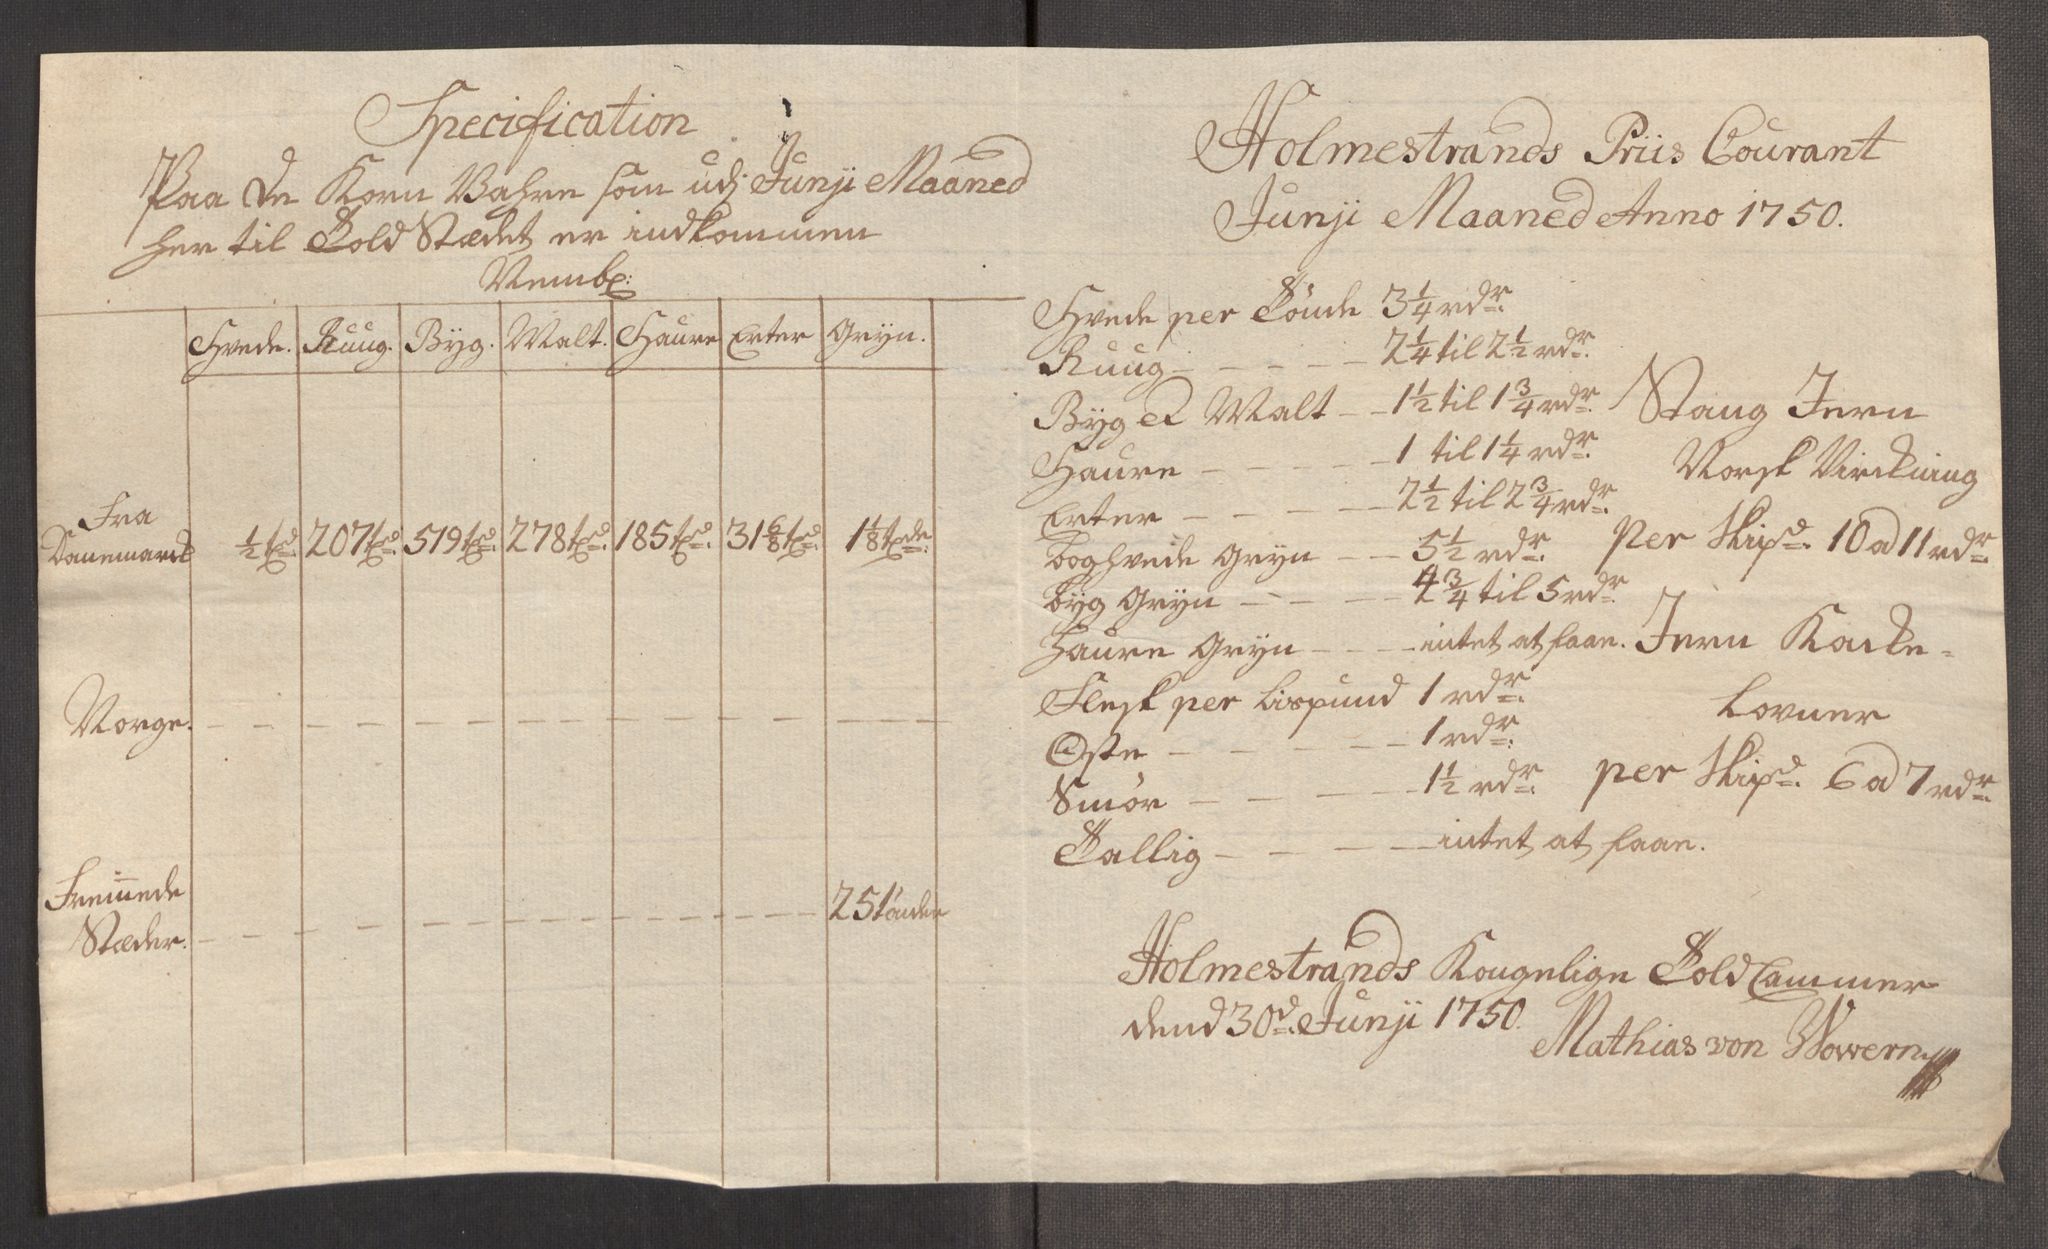 Specification
Paa de Korn Vahre som udj Junji Maaned
her til Told Stædet er indkommen
Nembl:
Hvede. Ruug. Byg. Malt. Haure Erter Gryn.
Fra
Danemarck ½ td. 207 td. 519 td. 278 td. 185 td. 31 6/8 td. 1 1/8 tde.
Norge. — — — — — — —
Fremmede
Stæder. — — — — — — 25 tönder
Holmestrands Priis Courant
Junji Maaned Anno 1750.
Hvede per Tönde 3¼ rdr.
Ruug — — — — 2¼ til 2½ rdr.
Byg et Malt — — 1½ til 1¾ rdr.
Haure — — — — 1 til 1¼ rdr.
Erter — — — — 2½ til 2¾ rdr.
boghvede Gryn — — 5½ rdr.
byg Gryn — — — 4¾ til 5 rdr.
Haure Gryn — — — intet at faae.
Flesk per Lispund 1 rdr.
Oste — — — — 1 rdr.
Smör — — — — 1½ rdr.
Tallig — — — — intet at faae.
Stang Jern
Norsk Virckning
per Skipd. 10 a 11 rdr.
Jern Kacke-
lovner
per Skipd. 6 a 7 rdr.
Holmestrands Kongelige Told Cammer
dend 30d. Junji 1750.
Mathias von Wowern